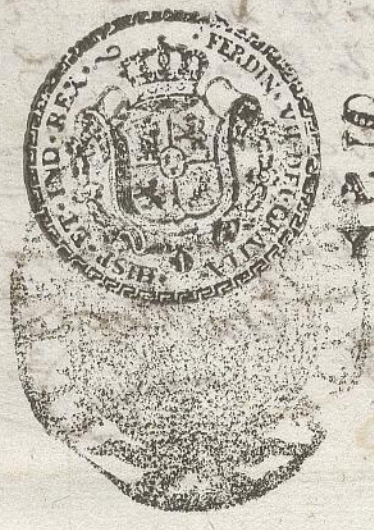 FERDIN · VII · DEI · GRATIA · HISP · ET · IND · REX ·